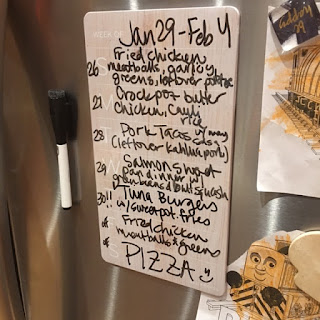 WEEK OF
Jan 29 - Feb 4
Fried chicken
26 meatballs, garlicy
greens, leftover potatoe
Crockpot butter
21 chicken, cauli
rice
28 Pork Tacos w/ mango
salsa
(leftover kahlua pork)
29 Salmon sheet
pan dinner w/
green beans & butt squash
30!! Tuna Burgers
w/ sweetpot. fries
Fried chicken
meatballs & greens
PIZZA